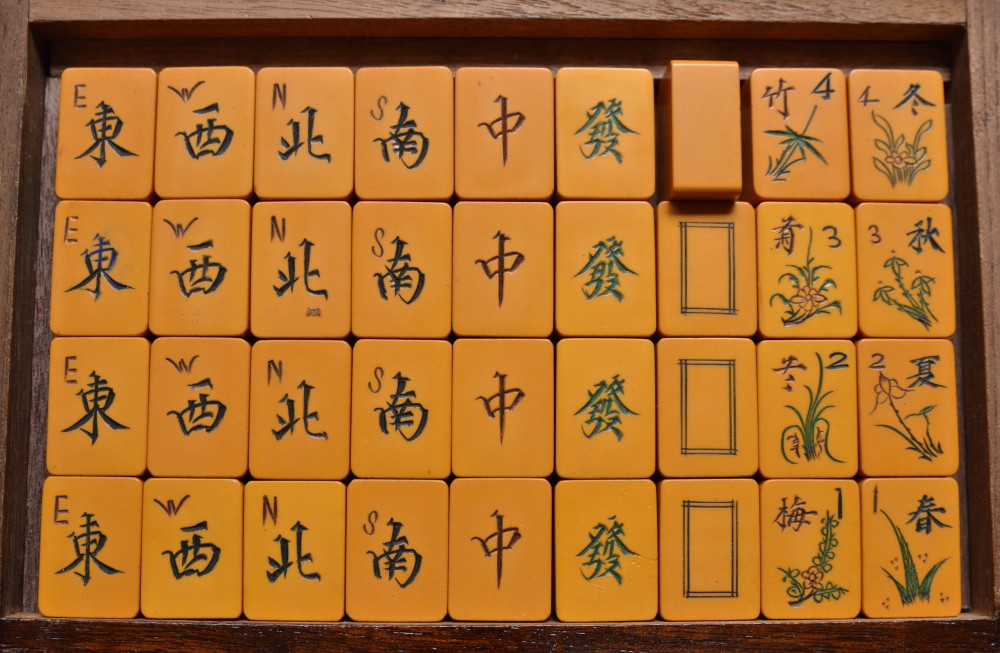 E 東 W 西 N 北 S 南 中 發 竹 4 4 冬
E 東 W 西 N 北 S 南 中 發 菊 3 3 秋
E 東 W 西 N 北 S 南 中 發 2 2 夏
E 東 W 西 N 北 S 南 中 發 梅 1 1 春